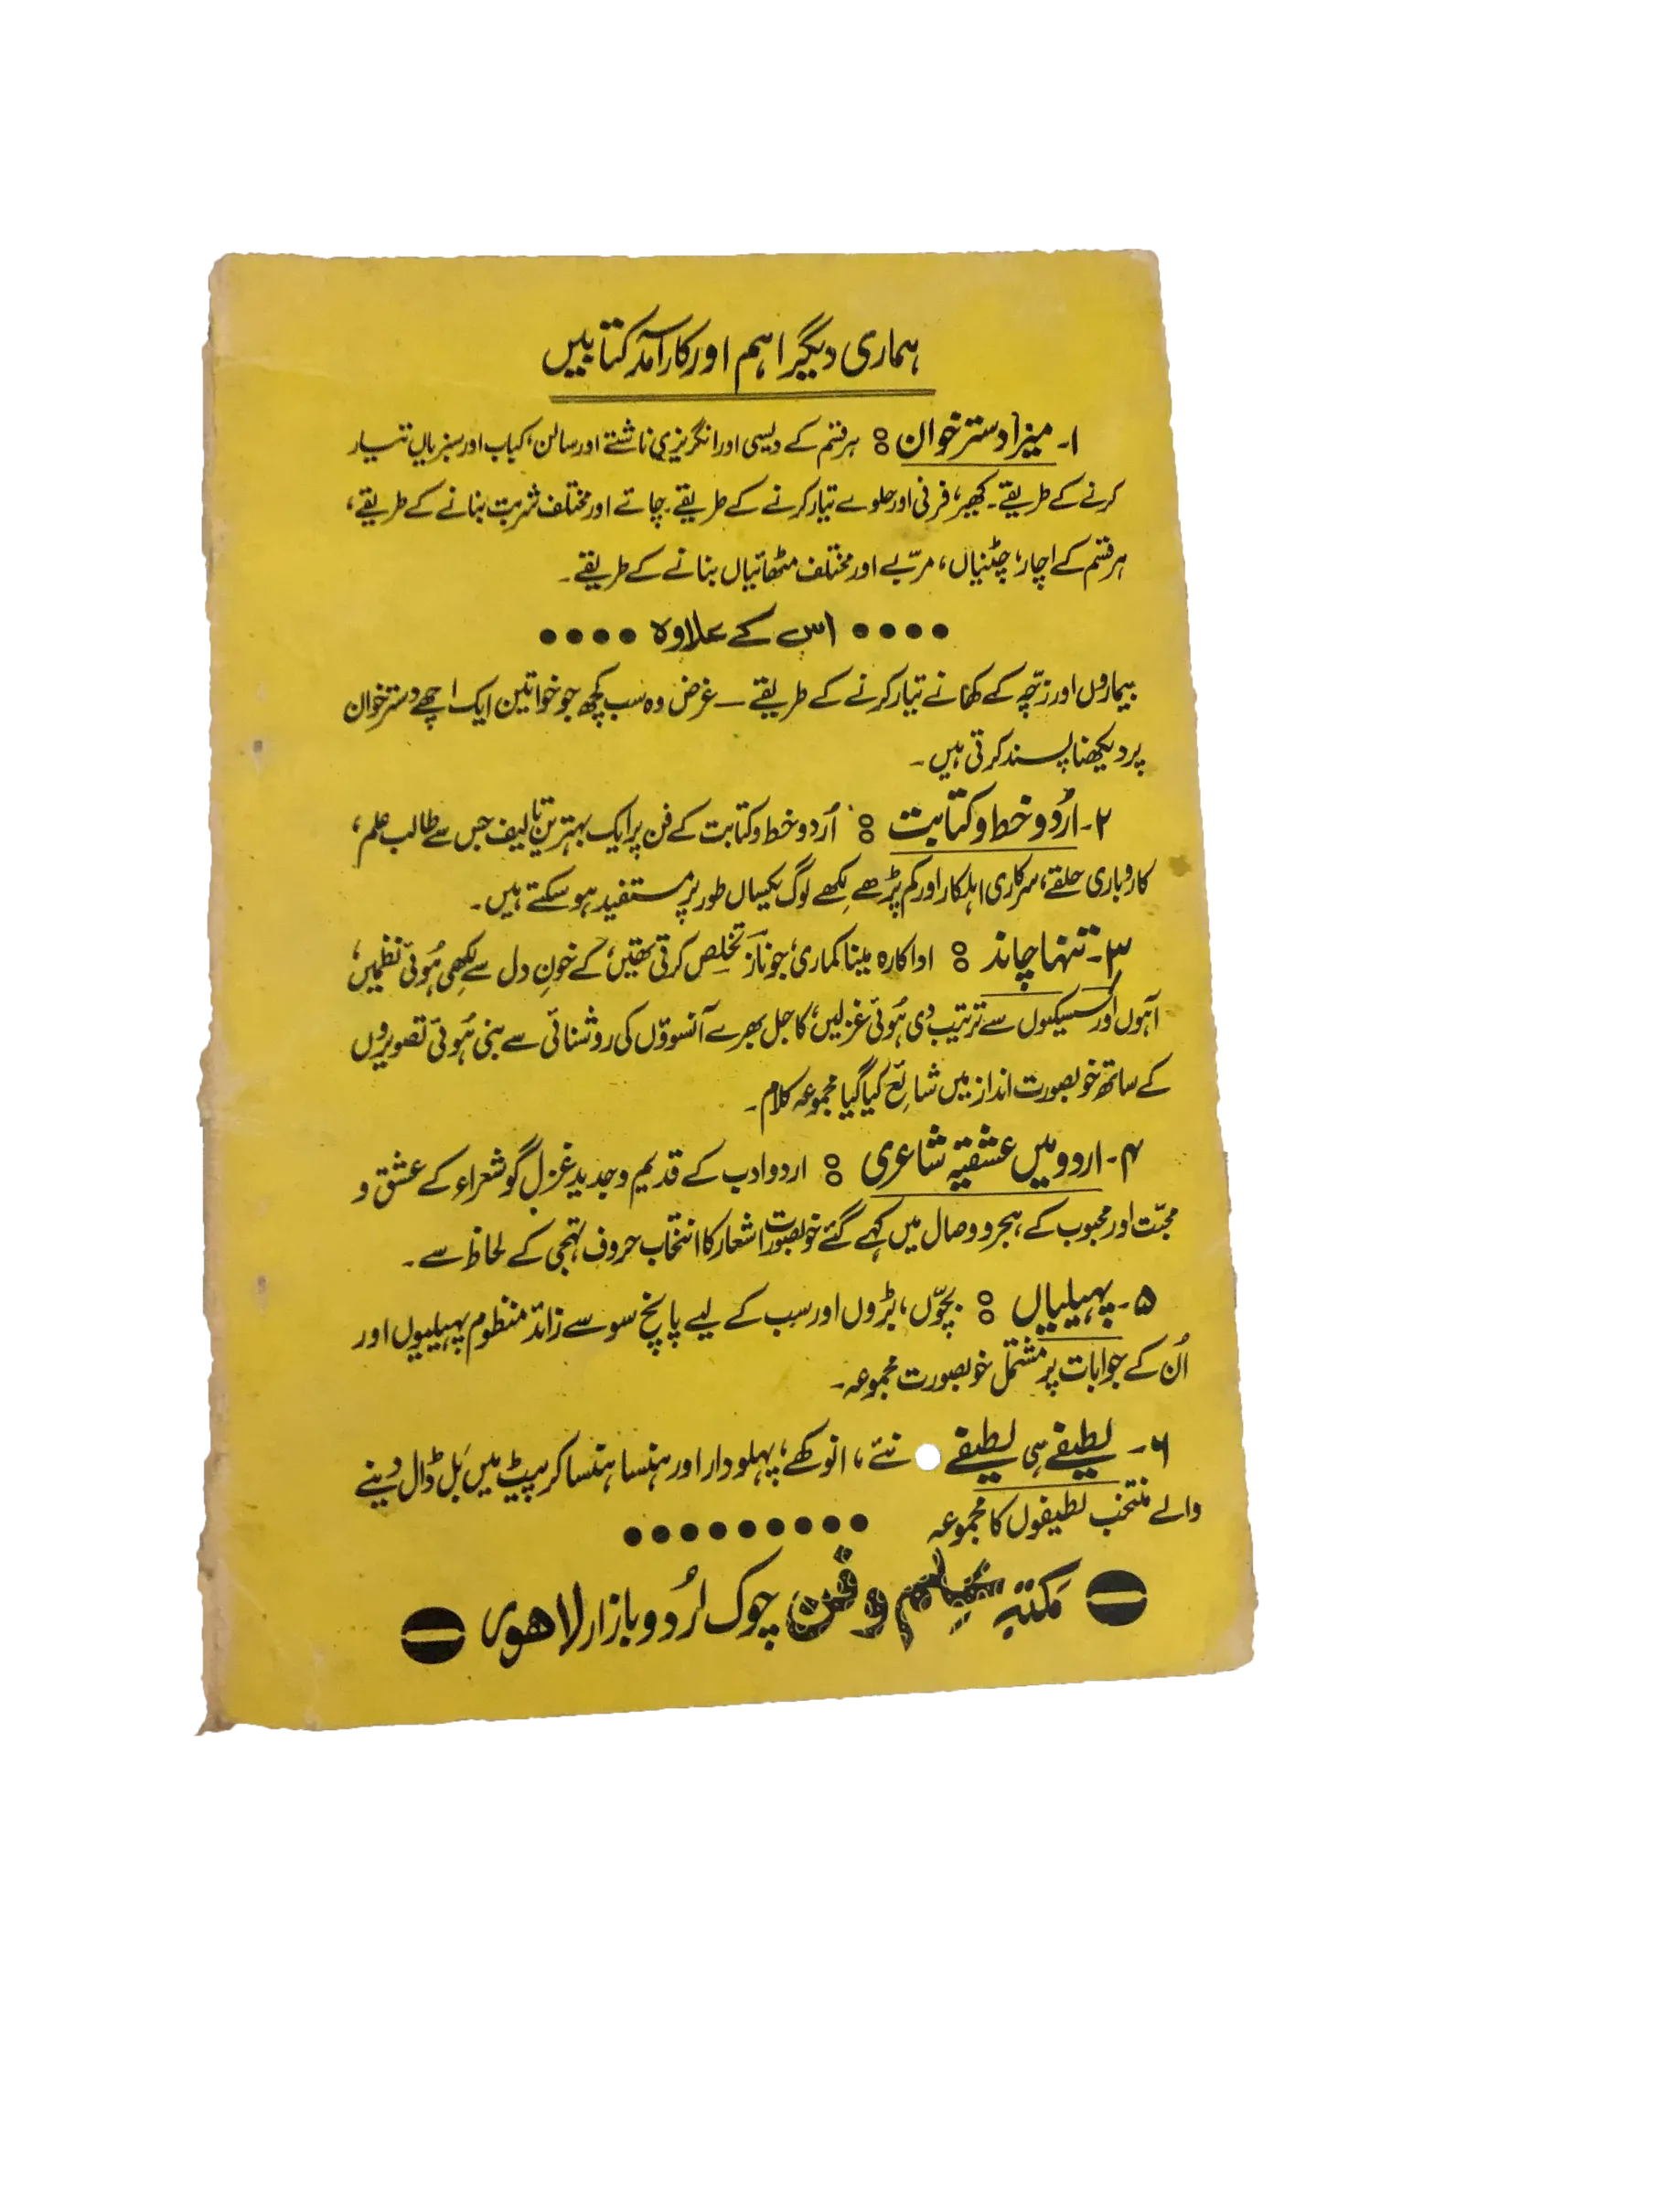 ہماری دیگر اہم اور کارآمد کتابیں
۱۔ میرا دسترخوان : ہر قسم کے دیسی اور انگریزی ناشتے اور سالن، کباب اور سبزیاں تیار
کرنے کے طریقے۔ کھیر، فرنی اور حلوے تیار کرنے کے طریقے۔ چائے اور مختلف شربت بنانے کے طریقے،
ہر قسم کے اچار، چٹنیاں، مربّے اور مختلف مٹھائیاں بنانے کے طریقے۔
•••• اس کے علاوہ ••••
بیماروں اور زچّہ کے کھانے تیار کرنے کے طریقے — غرض وہ سب کچھ جو خواتین ایک اچھے دسترخوان
پر دیکھنا پسند کرتی ہیں۔
۲۔ اُردو خط و کتابت : اُردو خط و کتابت کے فن پر ایک بہترین تالیف جس سے طالب علم،
کاروباری حلقے، سرکاری اہلکار اور کم پڑھے لِکھے لوگ یکساں طور پر مستفید ہو سکتے ہیں۔
۳۔ تنہا چاند : اداکارہ مینا کماری، جو نازؔ تخلص کرتی تھیں، کے خونِ دل سے لِکھی ہُوئی نظمیں،
آہوں اور سسکیوں سے ترتیب دی ہُوئی غزلیں، کاجل بھرے آنسوؤں کی روشنائی سے بنی ہُوئی تصویروں
کے ساتھ خوبصورت انداز میں شائع کیا گیا مجموعہ کلام۔
۴۔ اردو میں عشقیہ شاعری : اردو ادب کے قدیم و جدید غزل گو شعراء کے عشق و
محبّت اور محبوب کے ہجر و وصال میں کہے گئے خوبصورت اشعار کا انتخاب حروف تہجی کے لحاظ سے۔
۵۔ پہیلیاں : بچوّں، بڑوں اور سب کے لیے پانچ سو سے زائد منظوم پہیلیوں اور
اُن کے جوابات پر مشتمل خوبصورت مجموعہ۔
۶۔ لطیفے ہی لطیفے نئے، انوکھے، پہلودار اور ہنسا ہنسا کر پیٹ میں بَل ڈال دینے
والے منتخب لطیفوں کا مجموعہ •••••••••
مکتبہ علم و فن چوک اُردو بازار لاہور